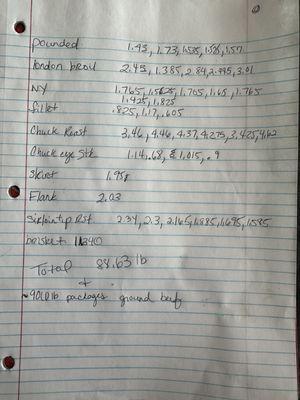 Pounded 1.45, 1.73, 1.535, 1.525, 1.57
london broil 2.45, 1.385, 2.84, 2.795, 3.01
NY 1.765, 1.765, 1.65, 1.765
1.425, 1.825
fillet .825, 1.17, .605
Chuck Roast 3.46, 4.46, 4.37, 4.275, 3.425, 4.62
Chuck eye Stk 1.14, .68, 1.015, .9
Skirt
Flank 2.03
Sirloin tip Rst 2.34, 2.3, 2.165, 1.885, 1.695, 1.585
brisket
Total 88.63 lb
+
~90 1lb packages ground beef